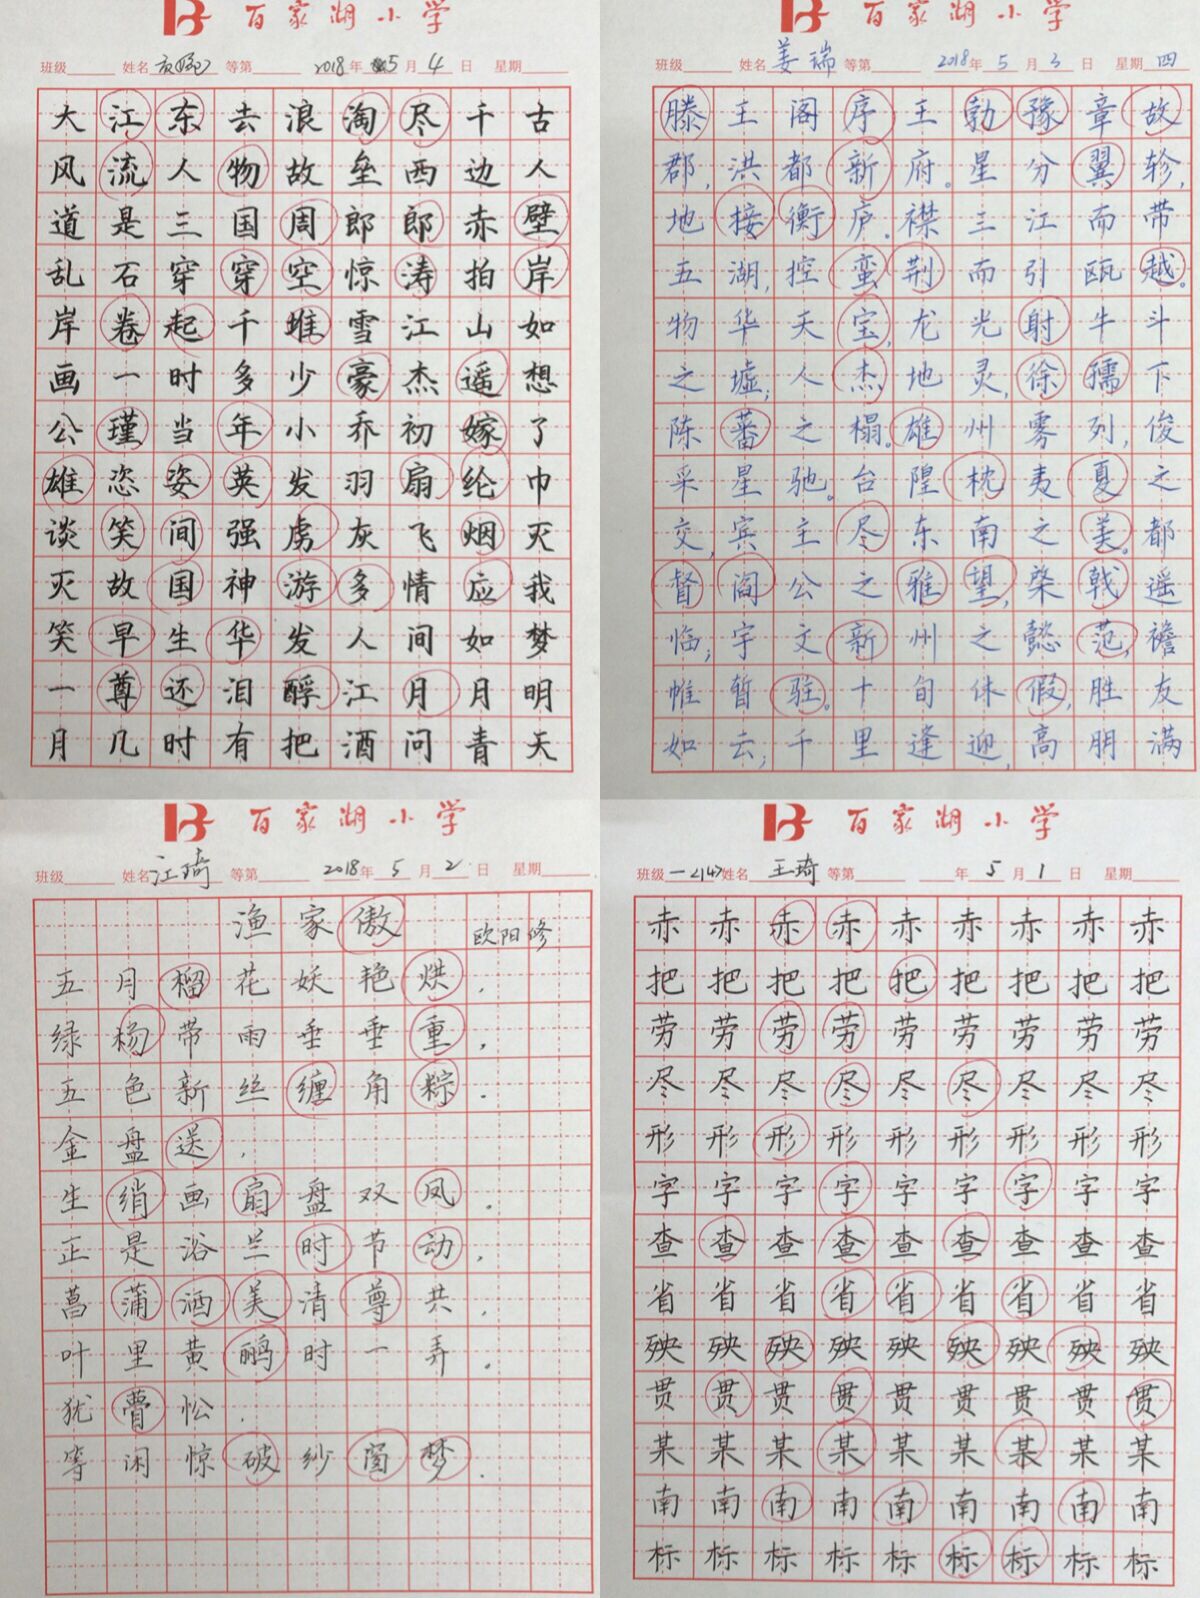 百家湖小学
班级 姓名 等第 2018年 5月 4日 星期
大江东去浪淘尽千古
风流人物故垒西边人
道是三国周郎郎赤壁
乱石穿穿空惊涛拍岸
岸卷起千堆雪江山如
画一时多少豪杰遥想
公瑾当年小乔初嫁了
雄恣姿英发羽扇纶巾
谈笑间强虏灰飞烟灭
灭故国神游多情应我
笑早生华发人间如梦
一尊还泪酹江月月明
月几时有把酒问青天
百家湖小学
班级 姓名 姜瑞 等第 2018年 5月 3日 星期 四
滕王阁序王勃豫章故
郡,洪都新府。星分翼轸,
地接衡庐。襟三江而带
五湖,控蛮荆而引瓯越。
物华天宝,龙光射牛斗
之墟;人杰地灵,徐孺下
陈蕃之榻。雄州雾列,俊
采星驰。台隍枕夷夏之
交,宾主尽东南之美。都
督阎公之雅望,棨戟遥
临;宇文新州之懿范,襜
帷暂驻。十旬休假,胜友
如云;千里逢迎,高朋满
百家湖小学
班级 姓名 江琦 等第 2018年 5月 2日 星期
渔家傲 欧阳修
五月榴花妖艳烘,
绿杨带雨垂垂重,
五色新丝缠角粽.
金盘送,
生绡画扇盘双凤.
正是浴兰时节动,
菖蒲酒美清尊共,
叶里黄鹂时一弄.
犹瞢忪,
等闲惊破纱窗梦.
百家湖小学
班级 一<14> 姓名 王琦 等第 年 5月 1日 星期
赤赤赤赤赤赤赤赤赤
把把把把把把把把把
劳劳劳劳劳劳劳劳劳
尽尽尽尽尽尽尽尽尽
形形形形形形形形形
字字字字字字字字字
查查查查查查查查查
省省省省省省省省省
殃殃殃殃殃殃殃殃殃
贯贯贯贯贯贯贯贯贯
某某某某某某某某某
南南南南南南南南南
标标标标标标标标标